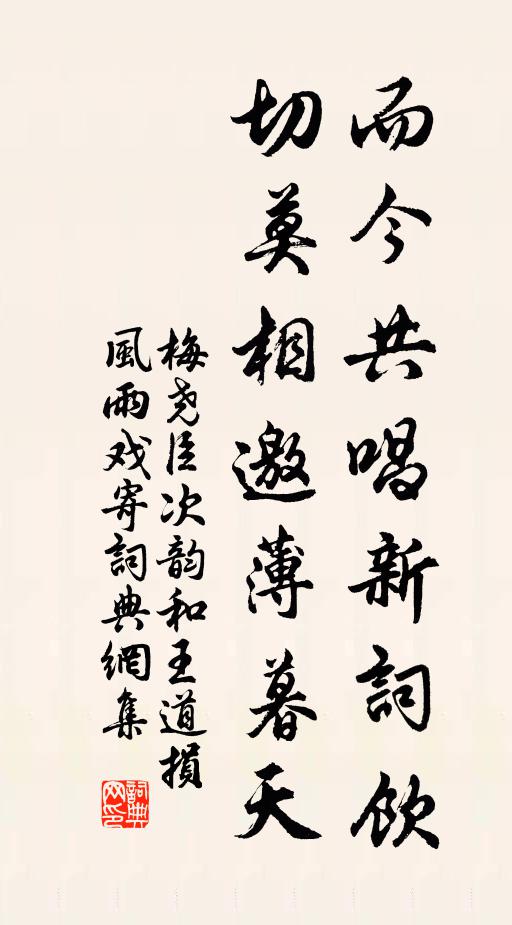 而今共唱新詞飲
切莫相邀薄暮天
梅尧臣次韵和王道損
風雨戏寄詞典網集
詞典网印